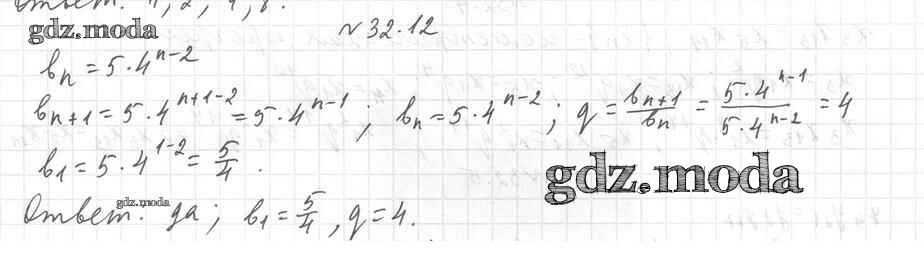 Ответ: 1, 2, 4, 8.
gdz.moda
№32.12
bₙ = 5·4ⁿ⁻²
bₙ₊₁ = 5·4ⁿ⁺¹⁻² = 5·4ⁿ⁻¹; bₙ = 5·4ⁿ⁻²; q = bₙ₊₁/bₙ = 5·4ⁿ⁻¹/5·4ⁿ⁻² = 4
b₁ = 5·4¹⁻² = 5/4.
gdz.moda
gdz.moda
Ответ: да; b₁ = 5/4, q = 4.